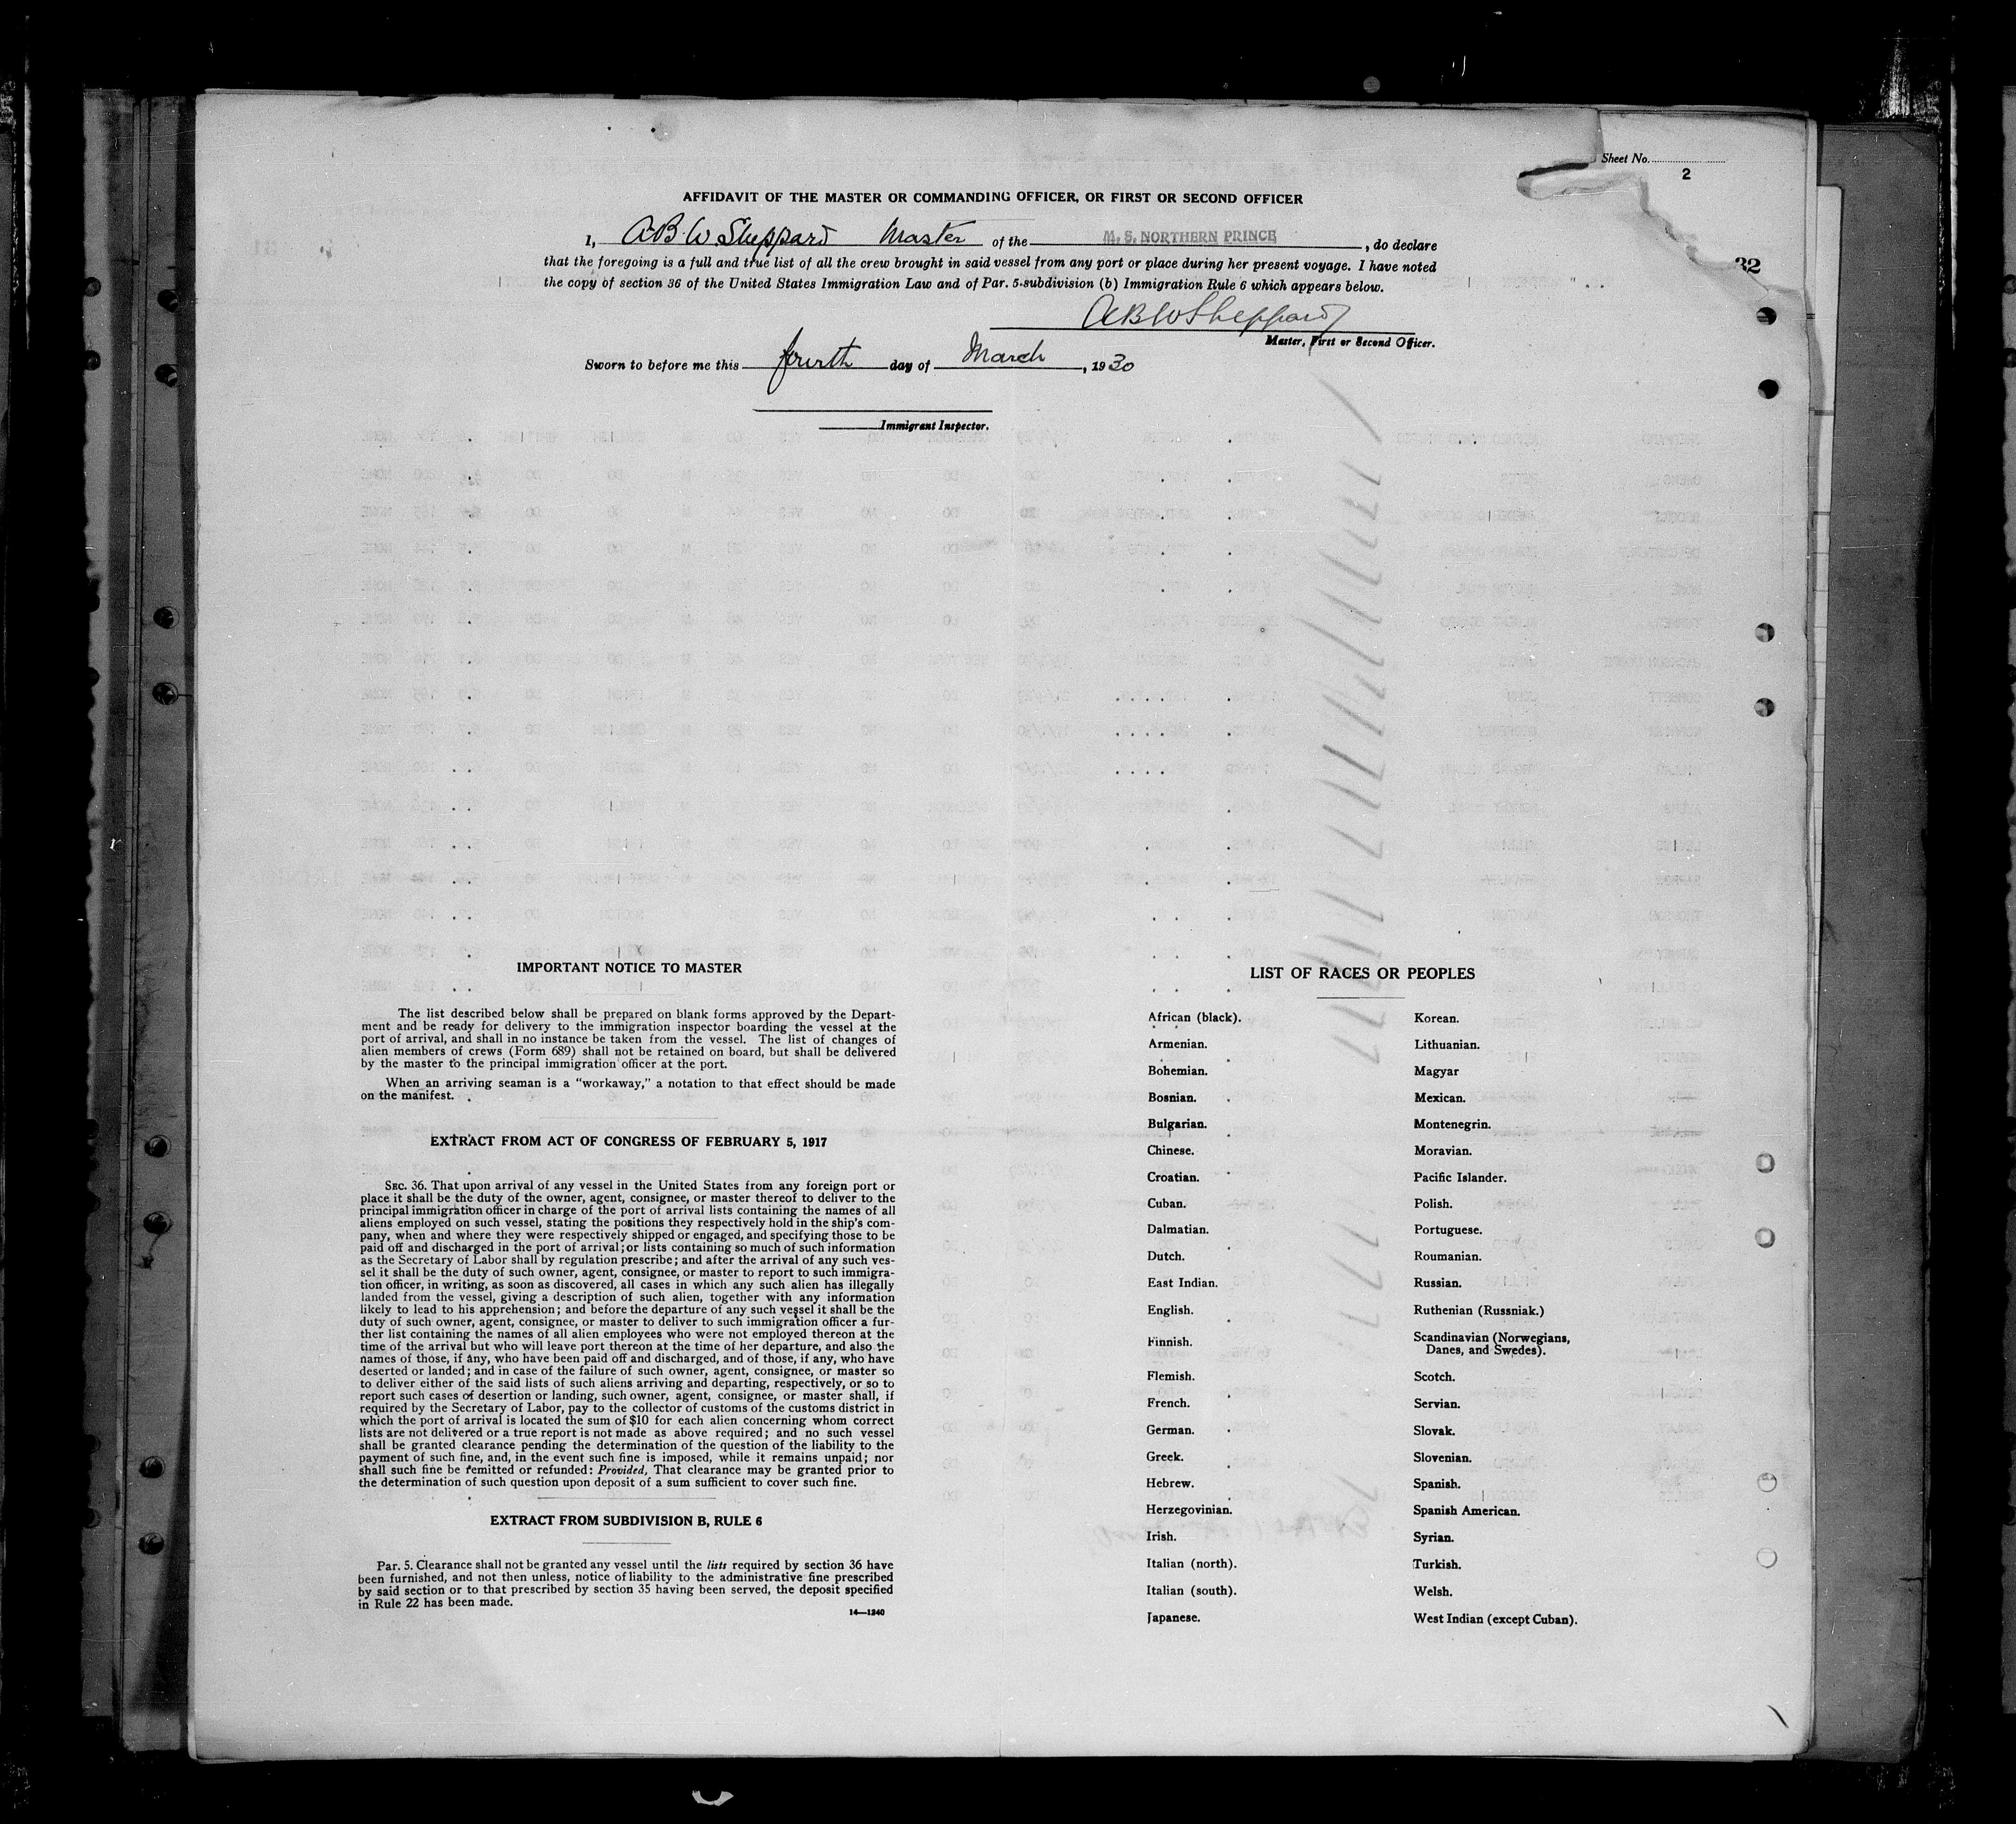 Sheet No.
2
32
AFFIDAVIT OF THE MASTER OR COMMANDING OFFICER, OR FIRST OR SECOND OFFICER
I, A.B.W. Sheppard Master of the M. S. NORTHERN PRINCE, do declare
that the foregoing is a full and true list of all the crew brought in said vessel from any port or place during her present voyage. I have noted
the copy of section 36 of the United States Immigration Law and of Par. 5 subdivision (b) Immigration Rule 6 which appears below.
ABWSheppard
Master, First or Second Officer.
Sworn to before me this fourth day of March, 1930
Immigrant Inspector.
IMPORTANT NOTICE TO MASTER
The list described below shall be prepared on blank forms approved by the Depart-
ment and be ready for delivery to the immigration inspector boarding the vessel at the
port of arrival, and shall in no instance be taken from the vessel. The list of changes of
alien members of crews (Form 689) shall not be retained on board, but shall be delivered
by the master to the principal immigration officer at the port.
When an arriving seaman is a "workaway," a notation to that effect should be made
on the manifest.
EXTRACT FROM ACT OF CONGRESS OF FEBRUARY 5, 1917
SEC. 36. That upon arrival of any vessel in the United States from any foreign port or
place it shall be the duty of the owner, agent, consignee, or master thereof to deliver to the
principal immigration officer in charge of the port of arrival lists containing the names of all
aliens employed on such vessel, stating the positions they respectively hold in the ship's com-
pany, when and where they were respectively shipped or engaged, and specifying those to be
paid off and discharged in the port of arrival; or lists containing so much of such information
as the Secretary of Labor shall by regulation prescribe; and after the arrival of any such ves-
sel it shall be the duty of such owner, agent, consignee, or master to report to such immigra-
tion officer, in writing, as soon as discovered, all cases in which any such alien has illegally
landed from the vessel, giving a description of such alien, together with any information
likely to lead to his apprehension; and before the departure of any such vessel it shall be the
duty of such owner, agent, consignee, or master to deliver to such immigration officer a fur-
ther list containing the names of all alien employees who were not employed thereon at the
time of the arrival but who will leave port thereon at the time of her departure, and also the
names of those, if any, who have been paid off and discharged, and of those, if any, who have
deserted or landed; and in case of the failure of such owner, agent, consignee, or master so
to deliver either of the said lists of such aliens arriving and departing, respectively, or so to
report such cases of desertion or landing, such owner, agent, consignee, or master shall, if
required by the Secretary of Labor, pay to the collector of customs of the customs district in
which the port of arrival is located the sum of $10 for each alien concerning whom correct
lists are not delivered or a true report is not made as above required; and no such vessel
shall be granted clearance pending the determination of the question of the liability to the
payment of such fine, and, in the event such fine is imposed, while it remains unpaid; nor
shall such fine be remitted or refunded: Provided, That clearance may be granted prior to
the determination of such question upon deposit of a sum sufficient to cover such fine.
EXTRACT FROM SUBDIVISION B, RULE 6
Par. 5. Clearance shall not be granted any vessel until the lists required by section 36 have
been furnished, and not then unless, notice of liability to the administrative fine prescribed
by said section or to that prescribed by section 35 having been served, the deposit specified
in Rule 22 has been made.
14—1240
LIST OF RACES OR PEOPLES
African (black).
Armenian.
Bohemian.
Bosnian.
Bulgarian.
Chinese.
Croatian.
Cuban.
Dalmatian.
Dutch.
East Indian.
English.
Finnish.
Flemish.
French.
German.
Greek.
Hebrew.
Herzegovinian.
Irish.
Italian (north).
Italian (south).
Japanese.
Korean.
Lithuanian.
Magyar
Mexican.
Montenegrin.
Moravian.
Pacific Islander.
Polish.
Portuguese.
Roumanian.
Russian.
Ruthenian (Russniak.)
Scandinavian (Norwegians,
Danes, and Swedes).
Scotch.
Servian.
Slovak.
Slovenian.
Spanish.
Spanish American.
Syrian.
Turkish.
Welsh.
West Indian (except Cuban).